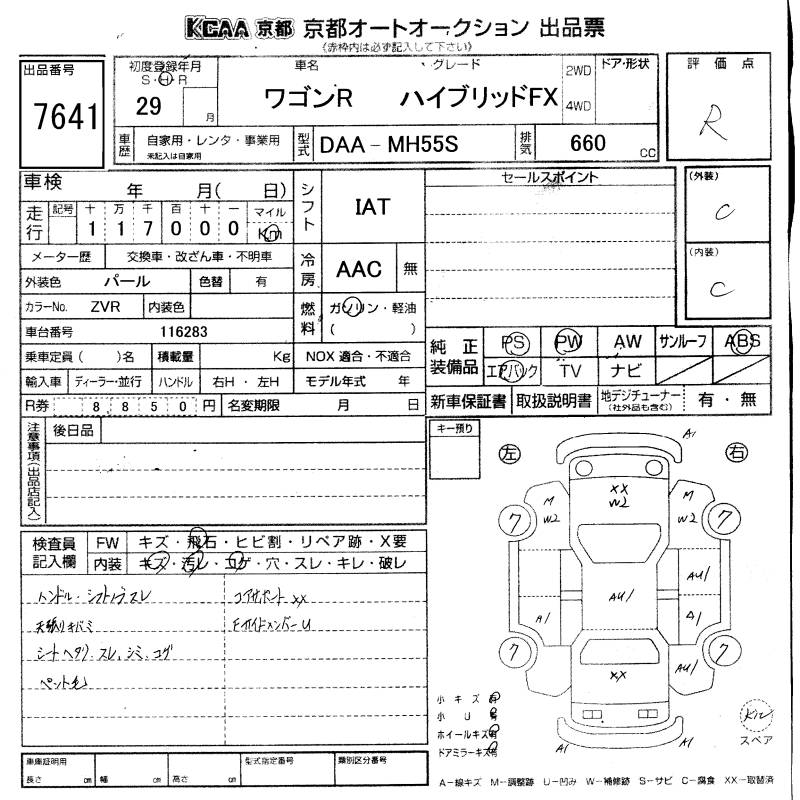 KCAA 京都 京都オートオークション 出品票
《赤枠内は必ず記入して下さい》
出品番号
7641
初度登録年月
S・H・R
29
月
車名
グレード
ワゴンR ハイブリッドFX
2WD
4WD
ドア・形状
評価点
R
車歴
自家用・レンタ・事業用
未記入は自家用
型式
DAA－MH55S
排気
660
cc
車検 年 月( 日)
走行
記号 十 万 千 百 十 一 マイル
1 1 7 0 0 0 Km
メーター歴 交換車・改ざん車・不明車
外装色 パール 色替 有
カラーNo. ZVR 内装色
車台番号 116283
乗車定員( )名 積載量 Kg
輸入車 ディーラー・並行 ハンドル 右H・左H
R券 8 8 5 0 円 名変期限 月 日
シフト
IAT
冷房
AAC 無
燃料
ガソリン・軽油
( )
NOX 適合・不適合
モデル年式 年
セールスポイント
(外装)
C
(内装)
C
純正装備品
PS PW AW サンルーフ ABS
エアバック TV ナビ
新車保証書 取扱説明書 地デジチューナー (社外品も含む) 有・無
注意事項(出品店記入)
後日品
キー預り
左 右
検査員記入欄
FW キズ・飛石・ヒビ割・リペア跡・X要
内装 キズ・汚レ・コゲ・穴・スレ・キレ・破レ
ハンドル・シフトノブスレ
コアサポートXX
天張りキバミ
FサイドメンバーU
シートヘタリ、スレ、シミ、コゲ
ペット毛
A1
XX
W2
M
W2
M
W2
7 7
AU1
AU1
A1
A1
7 7
AU1
XX
A1 A1
小キズ有
小U有
ホイールキズ有
ドアミラーキズ有
スペア
車庫証明用
長さ cm 幅 cm 高さ cm
型式指定番号
類別区分番号
A－線キズ M－調整跡 U－凹み W－補修跡 S－サビ C－腐食 XX－取替済